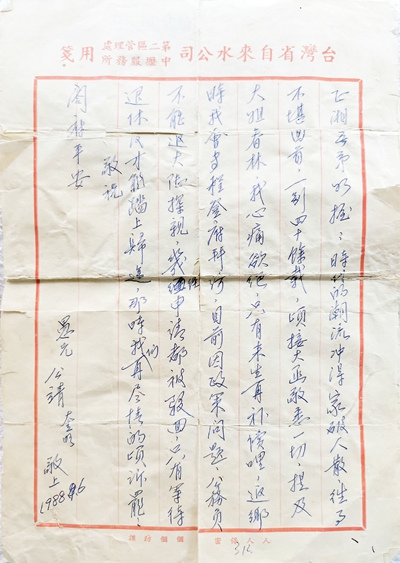 台灣省自來水公司第二區管理處中壢服務所用箋
湘吾弟如握：時代的潮流沖得家破人散往事
不堪回首，一別四十餘載，頃接大函敬悉一切，提及
大姐春林，我心痛欲絕，只有來生再補償哩，返鄉
時我會專程登府拜訪，目前因政策問題，公務員
不能返大陸探親，我申請都被駁回，只有等待
退休后才能踏上歸途，那時我们再尽情的傾訴罷，
敬祝
闔府平安
愚兄 敬上
1988
人人保密 個個防諜